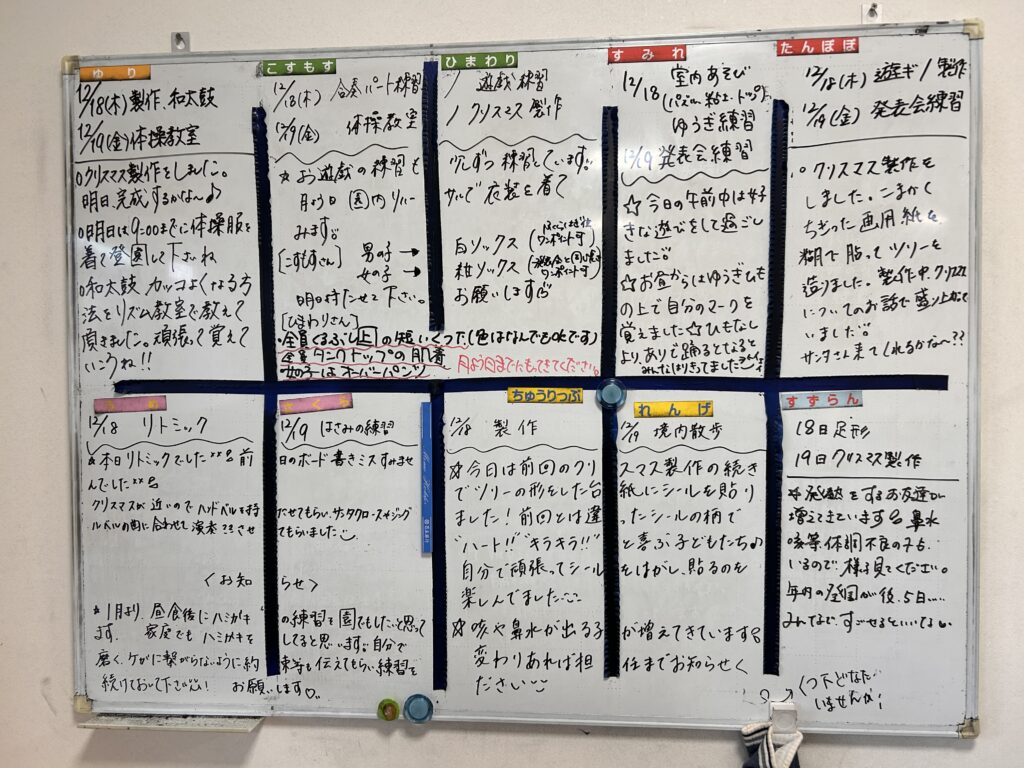 ゆり
12/18(木)製作、和太鼓
12/19(金)体操教室
○クリスマス製作をしました。
明日、完成するかな〜♪
○明日は9:00までに体操服を
着て登園して下さいね
○和太鼓 カッコよくなる方
法をリズム教室で教えて
頂きました。頑張って覚えて
いこうね!!
こすもす
12/18(木) 合奏パート練習
12/19(金) 体操教室
☆お遊戯の練習も
月よう日 園内リハー
みます。
[こすもすさん] 男の子→
女の子→
明日持たせて下さい。
[ひまわりさん]
・全員くるぶし上の短いくつ下(色はなんでもOKです)
全員タンクトップの肌着
女の子はオーバーパンツ
月よう日までにもってきてください。
ひまわり
/ 遊戯練習
/ クリスマス製作
少しずつ練習しています。
サルで衣装を着て
白ソックス
紺ソックス
ワンポイント可
お願いします
すみれ
12/18 室内あそび
ゆうぎ練習
12/19 発表会練習
☆今日の午前中は好
きな遊びをして過ごし
ました
☆お昼からはゆうぎひも
の上で自分のマークを
覚えました☆ひもなし
より、ありで踊るとなると
みんなはりきってました
たんぽぽ
12/18(木) 遊ギ/製作
12/19(金) 発表会練習
○クリスマス製作を
しました。こまかく
ちぎった画用紙を
糊で貼ってツリーを
造りました。製作中、クリスマス
についてのお話で盛り上がって
いました
サンタさん来てくれるかな〜??
12/18 リトミック
☆本日リトミックでした 前
んでした
クリスマスが近いのでハンドベルを持
ルベルの曲に合わせて演奏 させ
〈お知
*1月より、昼食後にハミガキ
ます。家庭でもハミガキを
磨く、ケガに繋がらないように約
続けておいて下さい! お
さくら
12/19 はさみの練習
日のボード書きミスすみませ
だせてもらい、サンタクロースやジング
てもらいました
らせ〉
の練習を園でもしたいと思って
してると思います。自分で
束等も伝えてもらい練習を
願いします♡。
ちゅうりっぷ
12/18 製作
☆今日は前回のクリ
でツリーの形をした台
ました!前回とは違
"ハート!!""キラキラ!!"
自分で頑張ってシール
楽しんでました
☆咳や鼻水が出る子
変わりあれば担
ださい
れんげ
12/19 境内散歩
スマス製作の続き
紙にシールを貼り
ったシールの柄で
と喜ぶ子どもたち♪
をはがし、貼るのを
が増えてきています
任までお知らせく
すずらん
18日 足形
19日クリスマス製作
☆発熱をするお友達が
増えてきています 鼻水
咳等、体調不良の子も
いるので、様子見てください。
年内の登園が後、5日....
みんなで、すごせるといいな
くつ下どなた
いませんか!